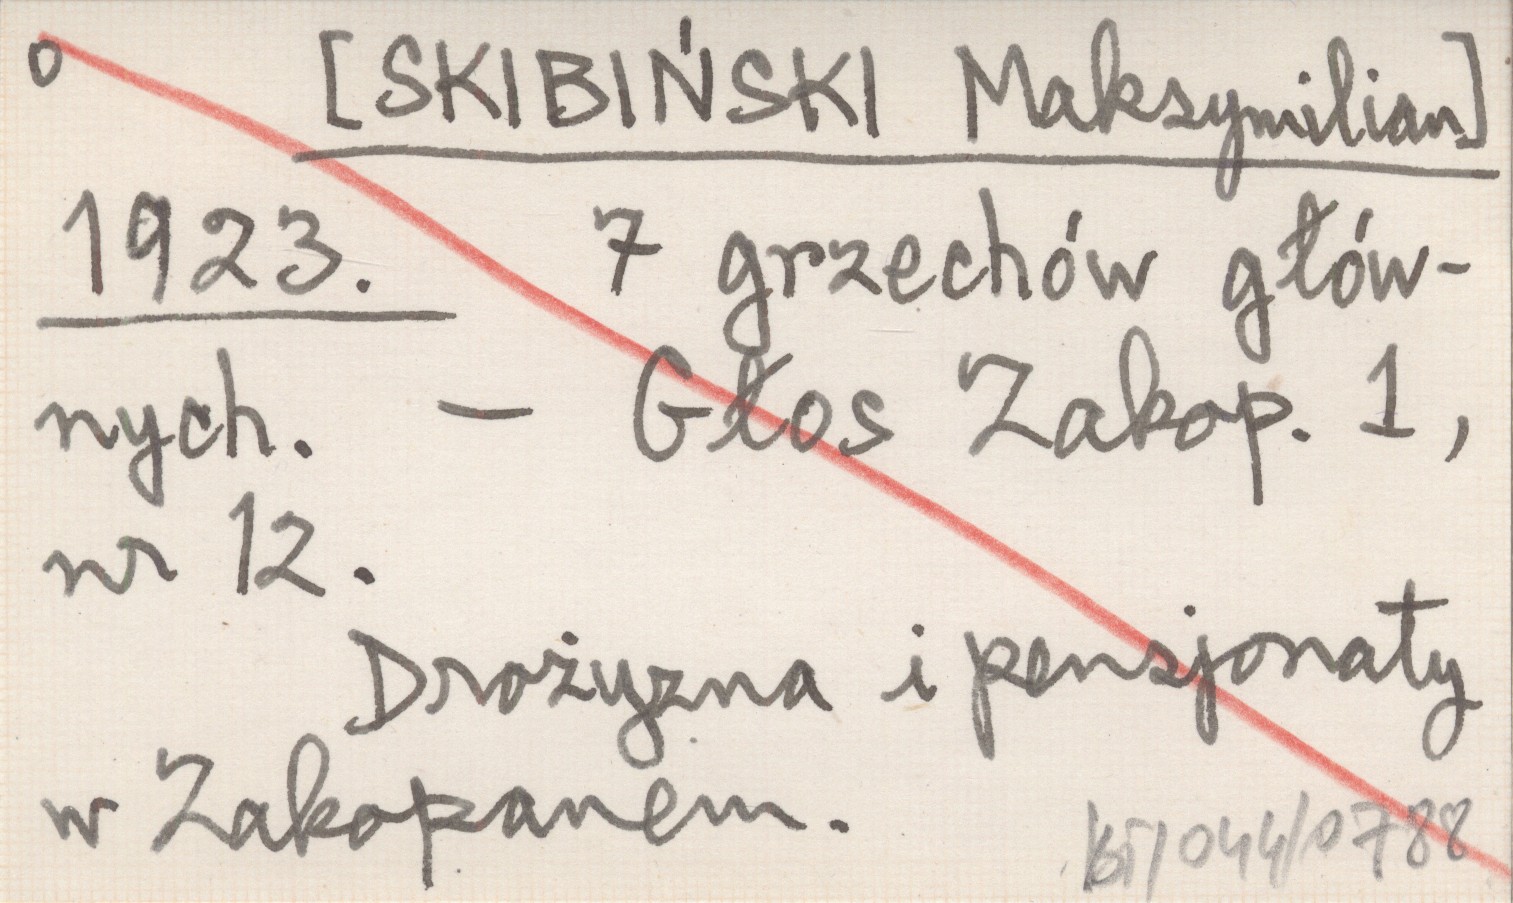 o [SKIBIŃSKI Maksymilian]
1923. 7 grzechów głów-
nych. — Głos Zakop. 1,
nr 12.
Drożyzna i pensjonaty
w Zakopanem.
/044/0788